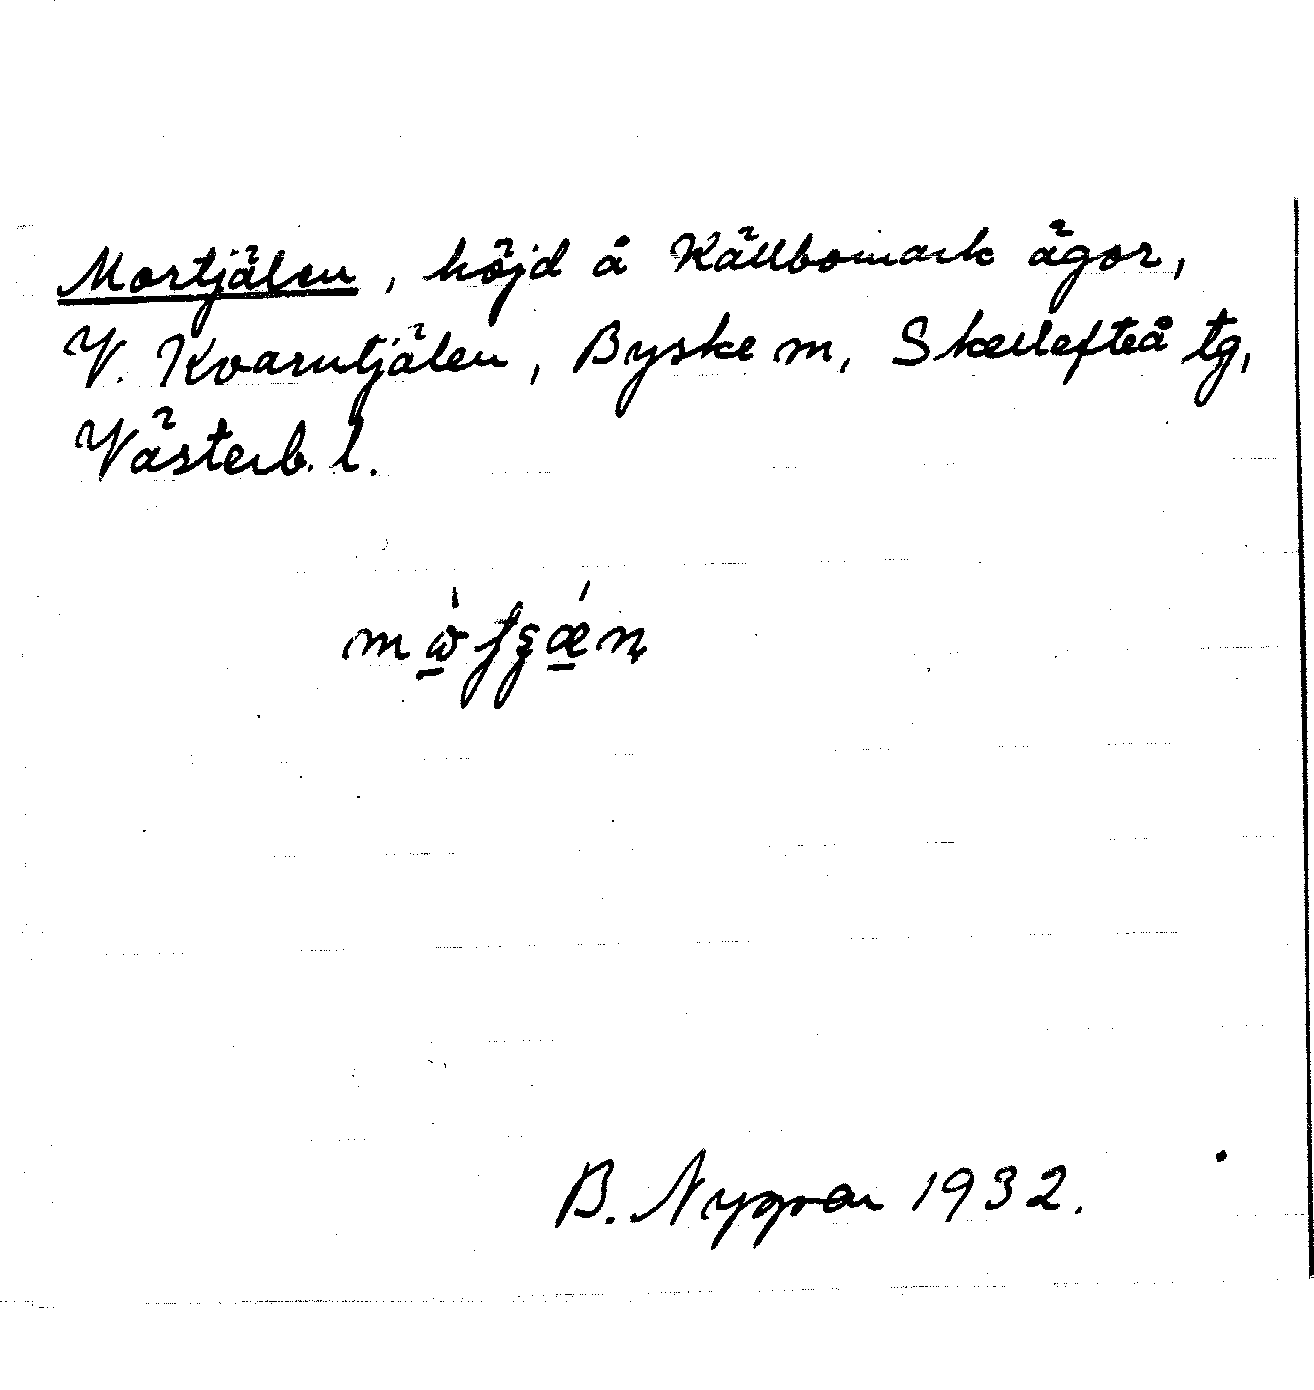 Mortjälen, höjd å Källbomark ägor,
V. Kvarntjälen, Byske m, Skellefteå tg,
Västerb. l.
B. Nygren 1932.